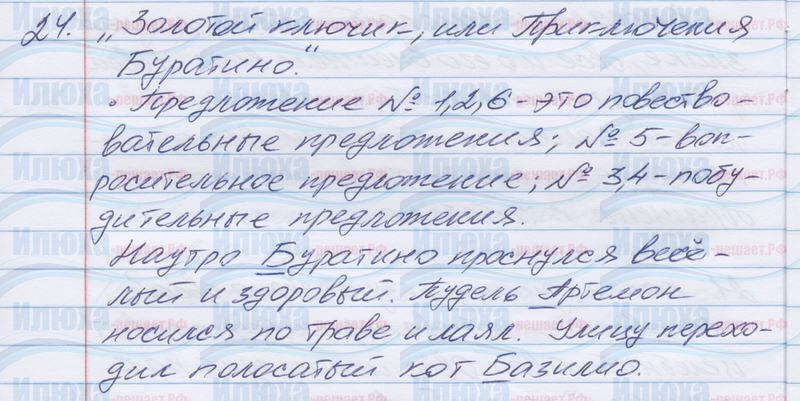 24. „Золотой ключик, или Приключения
Буратино."
• Предложение № 1,2,6 - это повество-
вательные предложения; № 5 - воп-
росительное предложение; № 3,4 - побу-
дительные предложения.
Наутро Буратино проснулся весё-
лый и здоровый. Пудель Артемон
носился по траве и лаял. Улицу перехо-
дил полосатый кот Базилио.